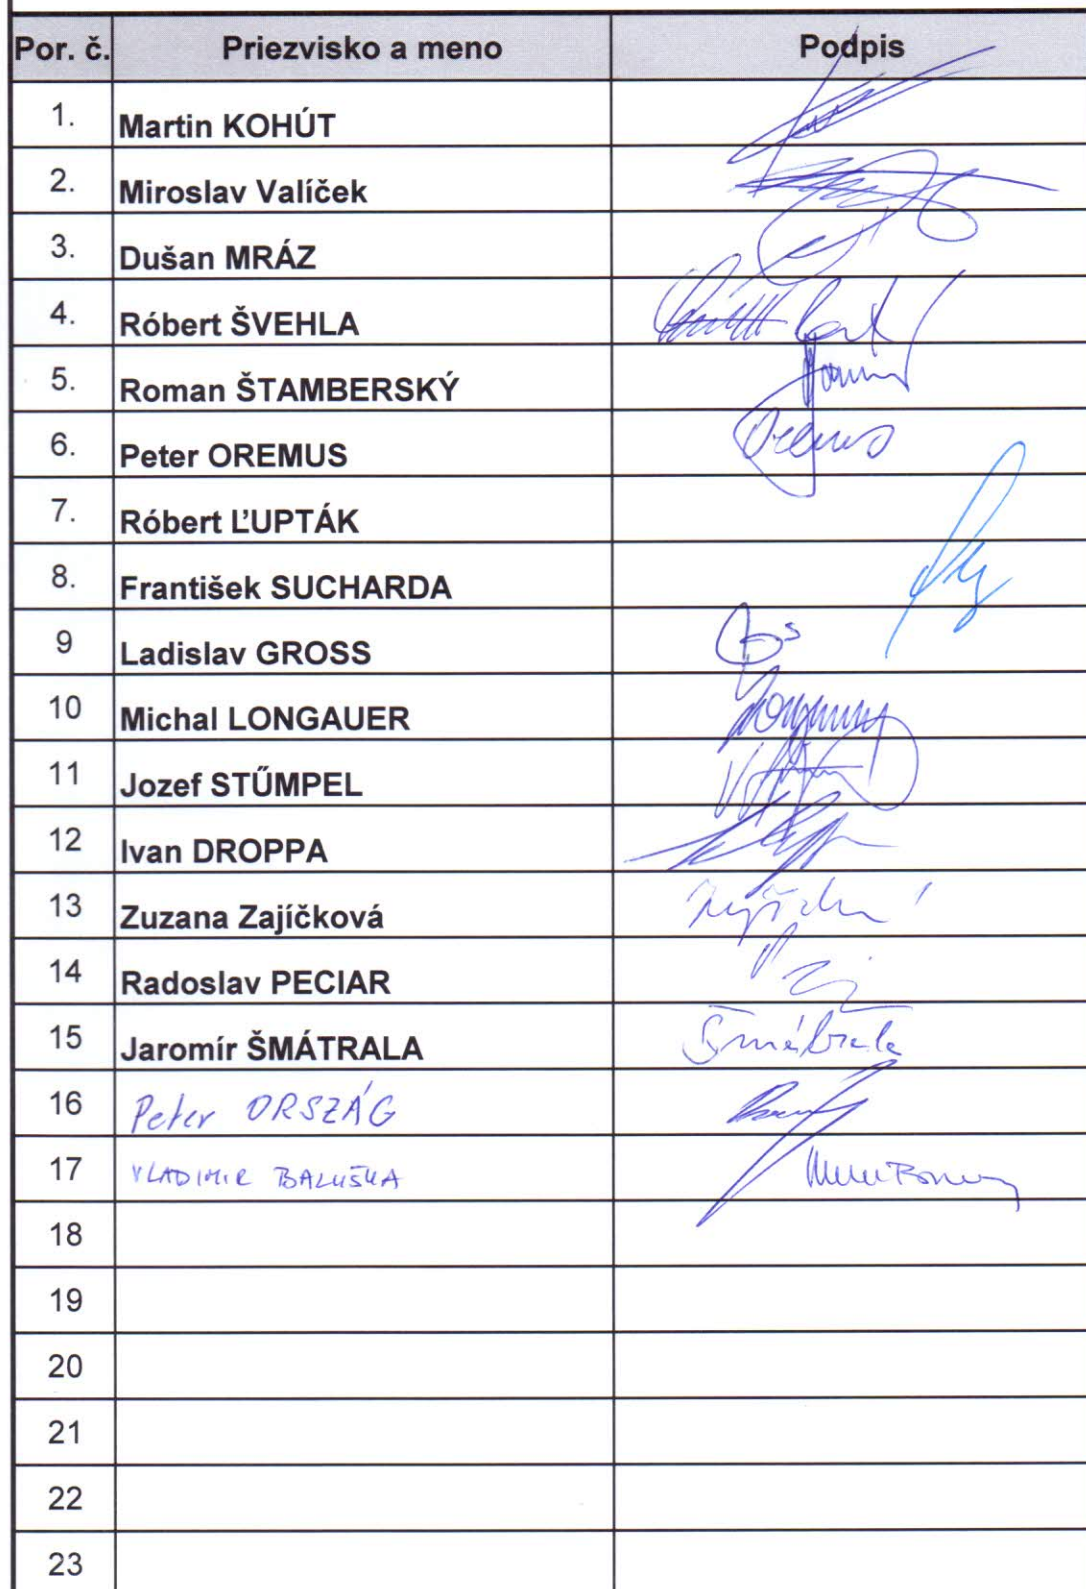 Por. č. Priezvisko a meno Podpis
1. Martin KOHÚT
2. Miroslav Valíček
3. Dušan MRÁZ
4. Róbert ŠVEHLA
5. Roman ŠTAMBERSKÝ
6. Peter OREMUS Oremus
7. Róbert ĽUPTÁK
8. František SUCHARDA
9 Ladislav GROSS
10 Michal LONGAUER
11 Jozef STŰMPEL
12 Ivan DROPPA
13 Zuzana Zajíčková
14 Radoslav PECIAR
15 Jaromír ŠMÁTRALA Šmátrala
16 Peter ORSZÁG
17 VLADIMIR BALUŠKA
18
19
20
21
22
23